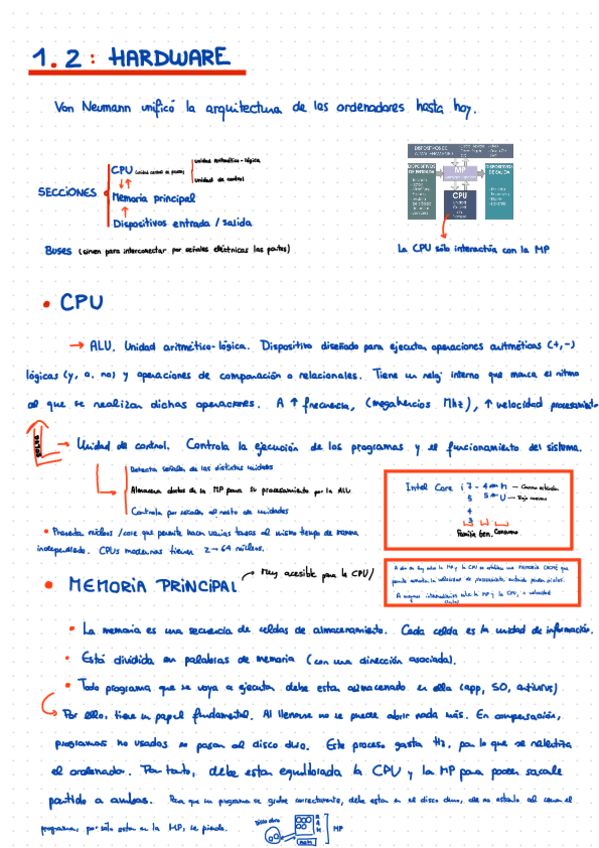 1.2: HARDWARE
Von Neumann unificó la arquitectura de los ordenadores hasta hoy.
SECCIONES
CPU
unidad aritmético-lógica
unidad de control
Memoria principal
Dispositivos entrada / salida
BUSES (sirven para interconectar por señales eléctricas las partes)
DISPOSITIVOS DE ALMACENAMIENTO
DISPOSITIVOS DE ENTRADA
MP
CPU
DISPOSITIVOS DE SALIDA
La CPU sólo interactúa con la MP
• CPU
→ ALU. Unidad aritmético-lógica. Dispositivo diseñado para ejecutar operaciones aritméticas (+,-)
lógicas (y, o, no) y operaciones de comparación o relacionales. Tiene un reloj interno que marca el ritmo
al que se realizan dichas operaciones. A ↑ frecuencia, (megahercios Mhz), ↑ velocidad procesamiento
→ Unidad de control. Controla la ejecución de los programas y el funcionamiento del sistema.
Detecta señales de las distintas unidades
Almacena datos de la MP para su procesamiento por la ALU
Controla por señales al resto de unidades
Intel Core i7 - 4
5
4
3
Familia Gen. Consumo
• Presenta núcleos /core que permite hacer varias tareas al mismo tiempo de manera
independiente. CPUs modernas tienen 2→64 núcleos.
A día de hoy entre la MP y la CPU se establece una MEMORIA CACHÉ que
permite aumentar la velocidad de procesamiento
A mayores intermediarios entre la MP y la CPU, velocidad
• MEMORIA PRINCIPAL
→ Muy accesible para la CPU/
• La memoria es una secuencia de celdas de almacenamiento. Cada celda es la unidad de información.
• Está dividida en palabras de memoria (con una dirección asociada).
• Todo programa que se vaya a ejecutar debe estar almacenado en ella (app, SO, antivirus)
→ Por ello, tiene un papel fundamental. Al llenarse no se puede abrir nada más. En compensación,
programas no usados se pasan al disco duro. Este proceso gasta Hz, por lo que se ralentiza
el ordenador. Por tanto, debe estar equilibrada la CPU y la MP para poder sacarle
partido a ambas. Para que un programa se grabe correctamente, debe estar en el disco duro, de no estarlo al cerrar el
programa, por sólo estar en la MP, se pierde.
Disco duro
RAM
MP